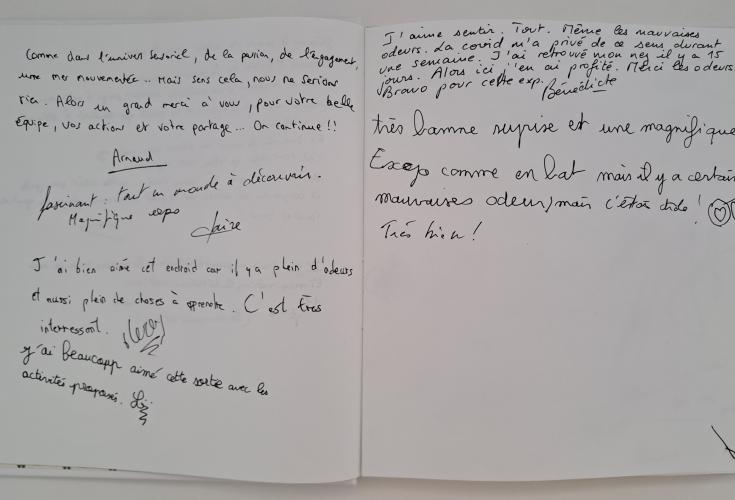 Comme dans l'univers sensoriel, de la passion, de l'engagement,
une mer mouvementée... Mais sens cela, nous ne serions
rien. Alors un grand merci à vous, pour votre belle
équipe, vos actions et votre partage... On continue !!
Arnaud
fascinant : tout un monde à découvrir.
Magnifique expo
Claire
J'ai bien aimé cet endroid car il y a plein d'odeurs
et aussi plein de choses à apprendre. C'est très
interressant.
y'ai Beaucoupp aimé cette sortie avec les
activités proposés.
J'aime sentir. Tout. Même les mauvaises
odeurs. La covid m'a privé de ce sens durant
une semaine. J'ai retrouvé mon nez il y a 15
jours. Alors ici j'en ai profité. Merci les odeurs.
Bravo pour cette exp. Bénédicte
très bonne suprise et une magnifique
Expo comme en bat mais il y a certain
mauvaises odeur, mais c'était
Très bien !